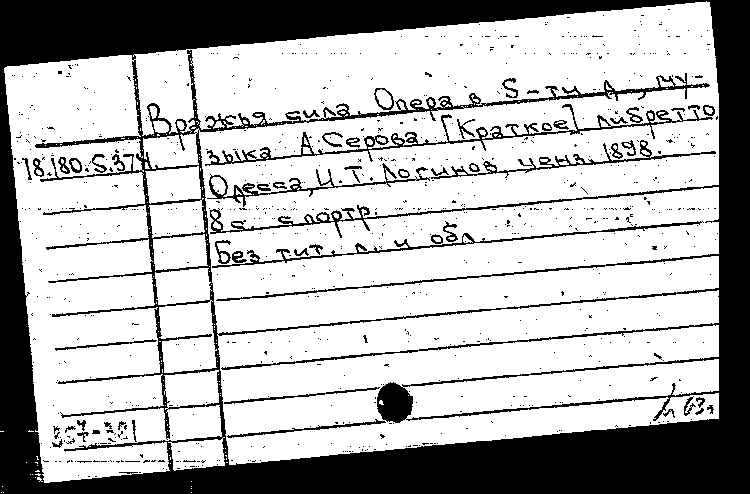 Вражья сила. Опера в 5-ти д., му-
зыка А. Серова. [Краткое] либретто.
18.180.5.374.
Одесса, И. Т. Логинов, ценз. 1898.
8 с. с портр.
Без тит. л. и обл.
367-381
63